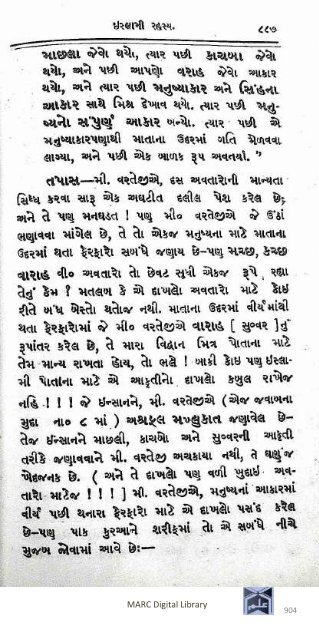 ઇસ્લામી રહસ્ય.
૮૮૭
માછલા જેવો થયો, ત્યાર પછી કાચબા જેવો
થયો, અને પછી આપણો વારાહ જેવો આકાર
થયો, અને ત્યાર પછી મનુષ્યાકાર અને સિંહના
આકાર સાથે મિશ્ર દેખાવ થયો. ત્યાર પછી મનુ-
ષ્યનો સંપુર્ણ આકાર બન્યો. ત્યાર પછી એ
મનુષ્યાકારપણાથી માતાના ઉદરમાં ગતિ મેળવવા
લાગ્યા, અને પછી એક બાળક રૂપ અવતર્યો. ”
તપાસ—મી. વરતેજીએ, દસ અવતારોની માન્યતા
સિધ્ધ કરવા સારૂ એક અઘટીત દલીલ પેશ કરેલ છે;
અને તે પણ મનઘડત ! પણ મી૦ વરતેજીએ જે ઉઠાં
ભણાવવા માંગેલ છે, તે તો એકજ મનુષ્યના માટે માતાના
ઉદરમાં થતા ફેરફારો સબંધે જણાય છે-પણ મચ્છ, કચ્છ
વારાહ વી૦ અવતારો તો છેવટ સુધી એકજ રૂપે રહ્યા
તેનું કેમ ? મતલબ કે એ દાખલો અવતારો માટે કોઇ
રીતે બંધ બેસ્તો થતોજ નથી. માતાના ઉદરમાં વીર્યમાંથી
થતા ફેરફારોમાં જે મી૦ વરતેજીએ વારાહ [ સુવ્વર ]નું
રૂપાંતર કરેલ છે, તે મારા વિદ્વાન મિત્ર પોતાના માટે
તેમ માન્ય રાખતા હોય, તો ભલે ! બાકી કોઇ પણ ઇસ્લા-
મી પોતાના માટે એ આકૃતીનો દાખલો કબુલ રાખેજ
નહિ ! ! ! જે ઇન્સાનને, મી. વરતેજીએ (એજ જવાબના
મુદ્દા ના૦ ૮ માં ) અશ્રફુલ મખ્લુકાત જણાવેલ છે-
તેજ ઇન્સાનને માછલી, કાચબો અને સુવ્વરની આકૃતી
તરીકે જણાવવાને મી. વરતેજી અચકાયા નથી, તે ઘણુંજ
ખેદજનક છે. ( અને તે દાખલો પણ વળી ખુદાઇ અવ-
તારો માટેજ ! ! ! ] મી. વરતેજીએ, મનુષ્યનાં આકારમાં
વીર્ય પછી થનારા ફેરફારો માટે એ દાખલો પસંદ કરેલ
છે-પણ પાક કુરઆને શરીફમાં તો એ સબંધે નીચે
મુજબ જોવામાં આવે છે:—
MARC Digital Library
904